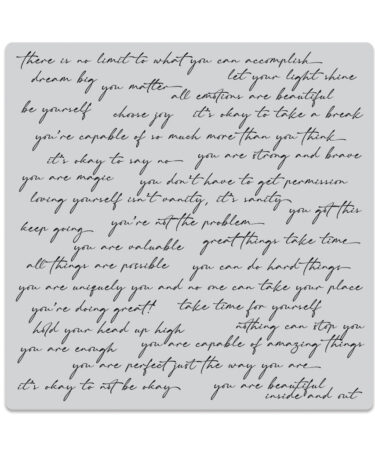 there is no limit to what you can accomplish
dream big
you matter
let your light shine
all emotions are beautiful
be yourself
choose joy
it's okay to take a break
you're capable of so much more than you think
it's okay to say no
you are strong and brave
you are magic
you don't have to get permission
loving yourself isn't vanity, it's sanity
you got this
keep going
you're not the problem
you are valuable
great things take time
all things are possible
you can do hard things
you are uniquely you and no one can take your place
you're doing great!
take time for yourself
hold your head up high
nothing can stop you
you are enough
you are capable of amazing things
you are perfect just the way you are
it's okay to not be okay
you are beautiful
inside and out